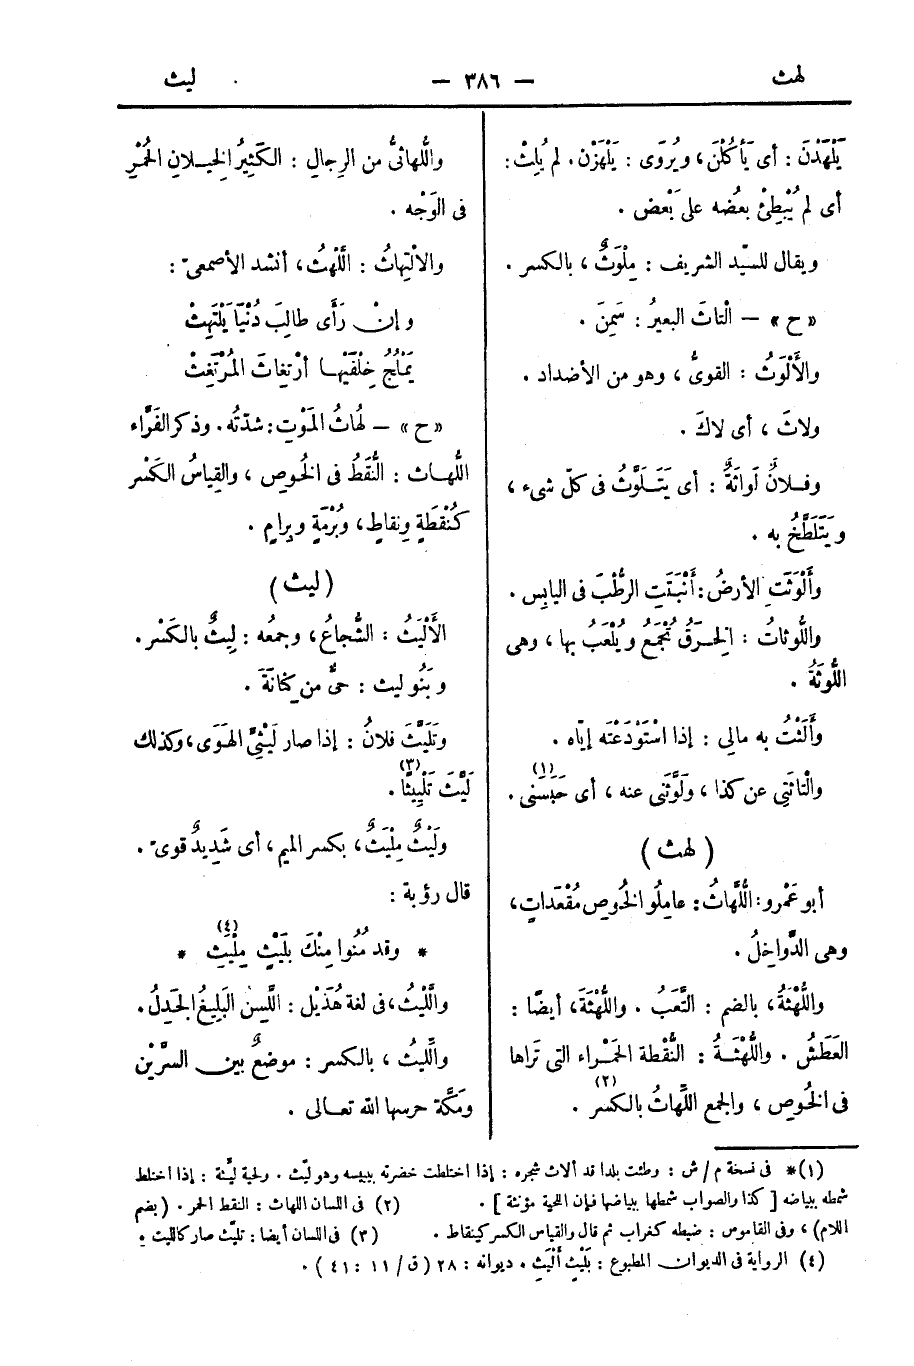 لهث — ٣٨٦ — ليث
يَلْهَدْنَ : أى يَأْكُلْنَ ، ويُرْوَى : يَلْهَزْن . لم يُلِثْ :
أى لم يُبْطِئْ بعضُه على بَعْض .
ويقال للسيّد الشريف : مِلْوَثٌ ، بالكسر .
« ح » — الْتاثَ البعيرُ : سَمِنَ .
والأَلْوَثُ : القوىُّ ، وهو من الأضداد .
ولاثَ ، أى لاكَ .
وفـلانٌ لَواثَةٌ : أى يَتَـلَوَّثُ فى كلّ شىء ،
ويَتَلَطَّخُ به .
وأَلْوَثَتِ الأرضُ : أَنْبَتَتِ الرُّطْبَ فى اليابِس .
واللُّوثاتُ : الخِرَقُ تُجْمَعُ ويُلْعَبُ بها ، وهى
اللُّوثَةُ .
وأَلَثْتُ به مالى : إذا اسْتَوْدَعْتَه إيّاه .
والْتاثَنِى عن كذا ، ولَوَّثَنى عنه ، أى حَبَسَنى (١) .
( لهث )
أبو عَمْرو : اللُّهَّاثُ : عامِلُو الخُوصِ مُقْعَداتٍ ،
وهى الدَّواخِلُ .
واللُّهْثَةُ ، بالضم : التَّعَبُ . واللُّهْثَةُ ، أيضًا :
العَطَشُ . واللُّهْثَـةُ : النُّقْطة الحَمْراء التى تَراها
فى الخُوصِ ، والجمع اللِّهاثُ بالكسر (٢) .
واللُّهاثىُّ من الرِجالِ : الكَثِيرُ الخِيـلانِ الحُمْرِ
فى الوَجْه .
والالْتِهاثُ : اللَّهْثُ ، أنشد الأصمعىّ :
وإنْ رَأَى طالِبَ دُنْيَا يَلْتَهِثْ
يَمْلُجُ خِلْفَيْهـا ارْتِغاثَ المُرْتَغِثْ
« ح » — لُهاثُ المَوْتِ : شدّتُه . وذكر الفَرَّاء
اللُّهـاث : النُّقَطُ فى الخُوص ، والقِياسُ الكَسْر
كنُقْطَةٍ ونِقاطٍ ، وبُرْمَةٍ وبِرامٍ .
( ليث )
الأَلْيَثُ : الشُّجاعُ ، وجمعُه : لِيثٌ بالكَسْر .
وبَنُو ليث : حىٌّ من كِنانَةَ .
وتَلَيَّثَ فلانٌ : إذا صار لَيْثِىَّ الهَوَى ، وكذلك
لَيَّثَ تَلْيِيثًا (٣) .
ولَيْثٌ مِلْيَثٌ ، بكسر الميم ، أى شَدِيدٌ قوىّ .
قال رؤبة :
* وقد مُنُوا مِنْكَ بِلَيْثٍ مِلْيَثِ (٤) *
واللَّيْثُ ، فى لغة هُذَيْل : اللَّسِنُ البَلِيغُ الجَدِلُ .
واللِّيثُ ، بالكسر : موضعٌ بين السِّرَّيْن
ومَكَّة حرسها الله تعـالى .
(١) * فى نسخة م / ش : وطئت بلدا قد ألاث شجره : إذا اختلطت خضرته بيبسه وهو ليّث . ولحية ليّثة : إذا اختلط
شمطه ببياضه [ كذا والصواب شمطها ببياضها فإن اللحية مؤنثة ] . (٢) فى اللسان اللهاث : النقط الحمر . ( بضم
اللام ) ، وفى القاموس : ضبطه كغراب ثم قال والقياس الكسر كينقاط . (٣) فى اللسان أيضا : تليّث صار كالليث .
(٤) الرواية فى الديوان المطبوع : بَلَيْثٍ أَلْيَثِ . ديوانه : ٢٨ ( ق / ١١ : ٤١ ) .